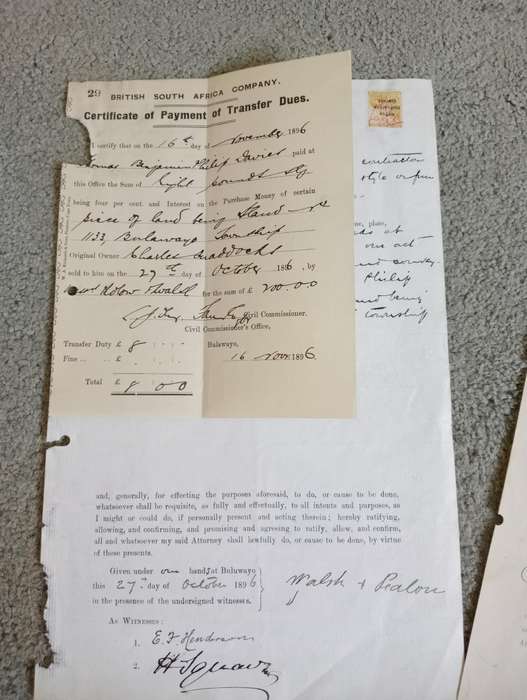 29 BRITISH SOUTH AFRICA COMPANY.
Certificate of Payment of Transfer Dues.
I certify that on the 16th day of November 1896
Thomas Benjamin Philip Davies paid at
this Office the Sum of Eight pounds Stg
being four per cent. and Interest on the Purchase Money of certain
piece of land being Stand No
1133, Bulawayo Township
Original Owner Charles Craddock
sold to him on the 27th day of October 1896, by
for the sum of £ 200.0.0
Civil Commissioner.
Civil Commissioner's Office,
Transfer Duty £ 8
Bulawayo,
Fine
16 Novr. 1896
Total £ 8 0 0
contractor
style or firm
place,
at
one act
and
Philip
and being
Township
and, generally, for effecting the purposes aforesaid, to do, or cause to be done,
whatsoever shall be requisite, as fully and effectually, to all intents and purposes, as
I might or could do, if personally present and acting therein; hereby ratifying,
allowing, and confirming, and promising and agreeing to ratify, allow, and confirm,
all and whatsoever my said Attorney shall lawfully do, or cause to be done, by virtue
of these presents.
Given under our hands at Buluwayo
this 27th day of October 1896
in the presence of the undersigned witnesses.
Walsh +
AS WITNESSES :
1. E. F. Henderson
2.